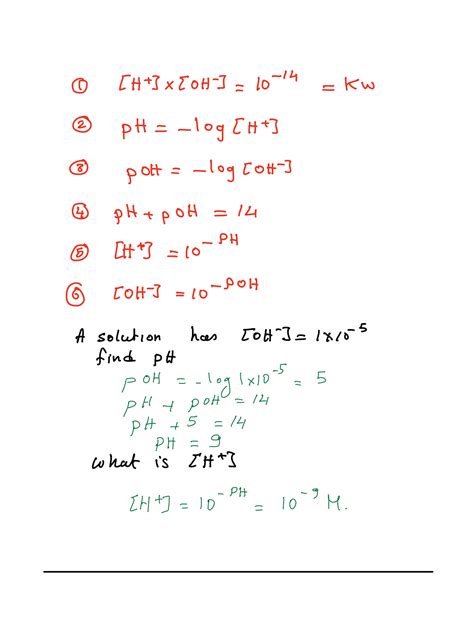 ① [H+] x [OH-] = 10^-14 = Kw
② pH = -log [H+]
③ pOH = -log [OH-]
④ pH + pOH = 14
⑤ [H+] = 10^-PH
⑥ [OH-] = 10^-POH
A solution has [OH-] = 1x10^-5
find pH
pOH = -log 1x10^-5 = 5
pH + pOH = 14
pH + 5 = 14
pH = 9
what is [H+]
[H+] = 10^-PH = 10^-9 M.